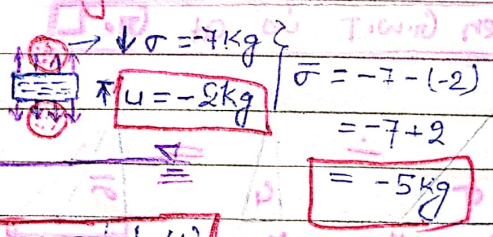 ↓ σ = -7kg
↑ u = -2kg
σ̄ = -7 - (-2)
= -7+2
= -5kg